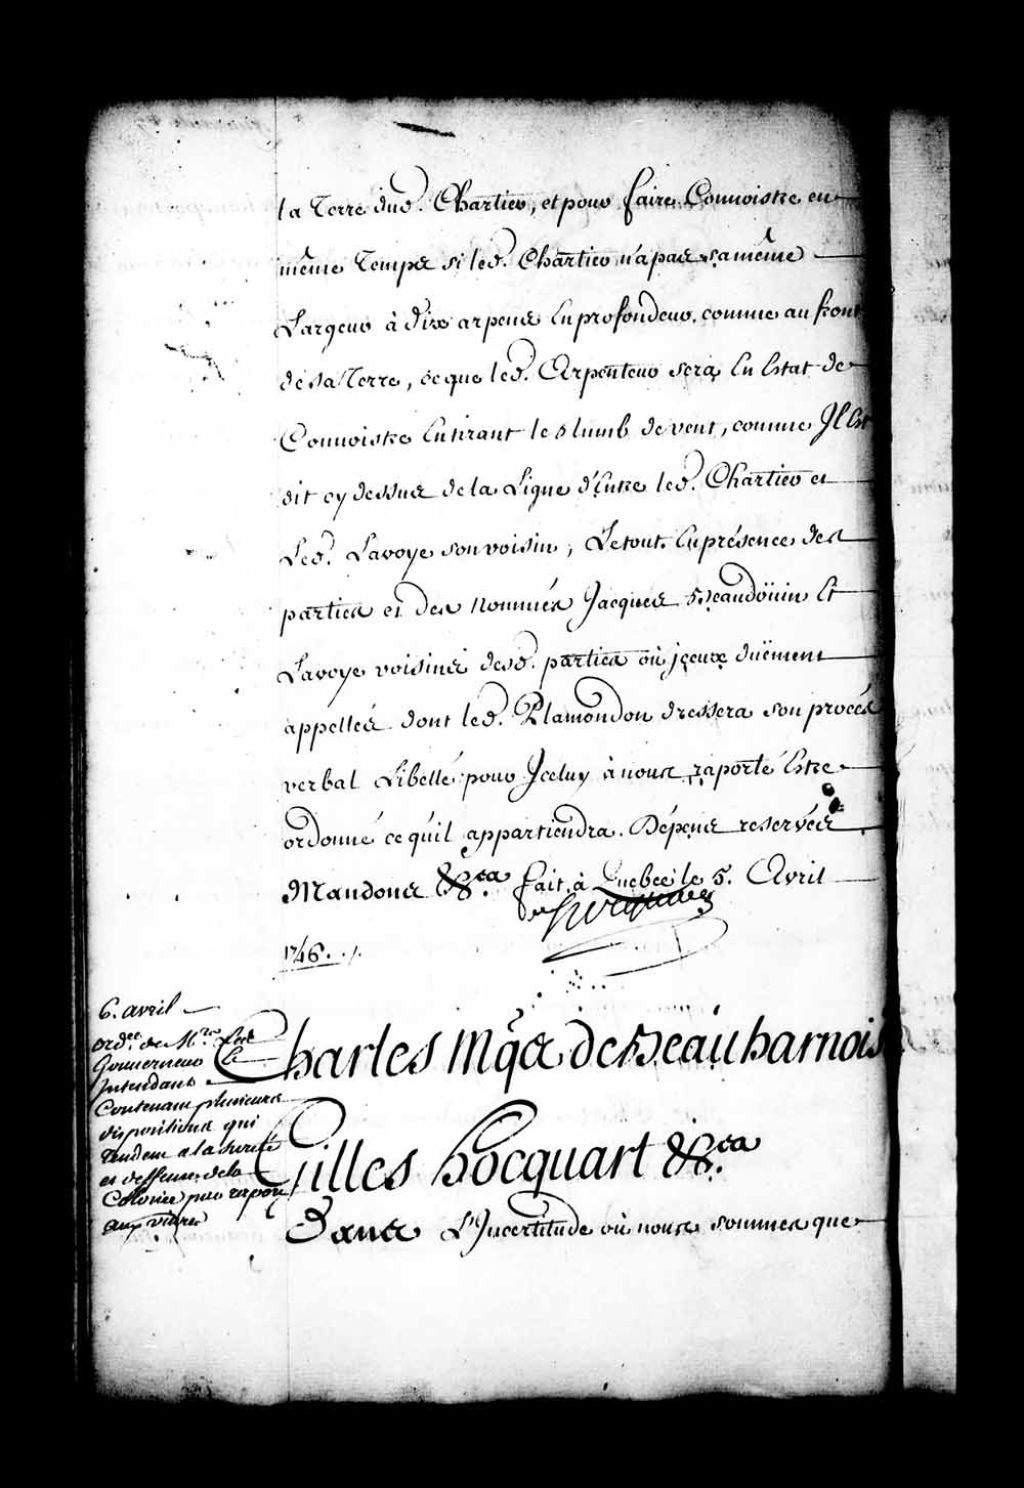 la Terre dud. Chartier, et pour faire Connoistre en
même Temps si led. Chartier n'a pas sa même
Largeur à dire arpens En profondeur, comme au front
de sa Terre, ce que led. Arpenteur sera En Estat de
Connoistre En tirant le Rhumb de vent, comme Il Est
dit cy dessus de la Ligne d'Entre led. Chartier et
Led. Lavoye son voisin, Le tout En présence des
parties et des nommés Jacques Beaudöüin Et
Lavoye voisins desd. parties où jceux düement
appellés dont led. Plamondon dressera son procés
verbal Libellé pour Jceluy à nous raporté Estre
ordonné ce qu'il appartiendra. Dépens reservés
Mandons &ca. fait à Quebec le 5. Avril
1746. ./.
6. avril
ordce. de Mrs.
Gouverneur Et
Intendant
Contenant plusieurs
dispositions qui
tendent a la sureté
et deffense de la
Colonie par raport
aux vivres
Charles Mqs de Beauharnois
Gilles hocquart &ca.
Dans L'Incertitude où nous sommes que